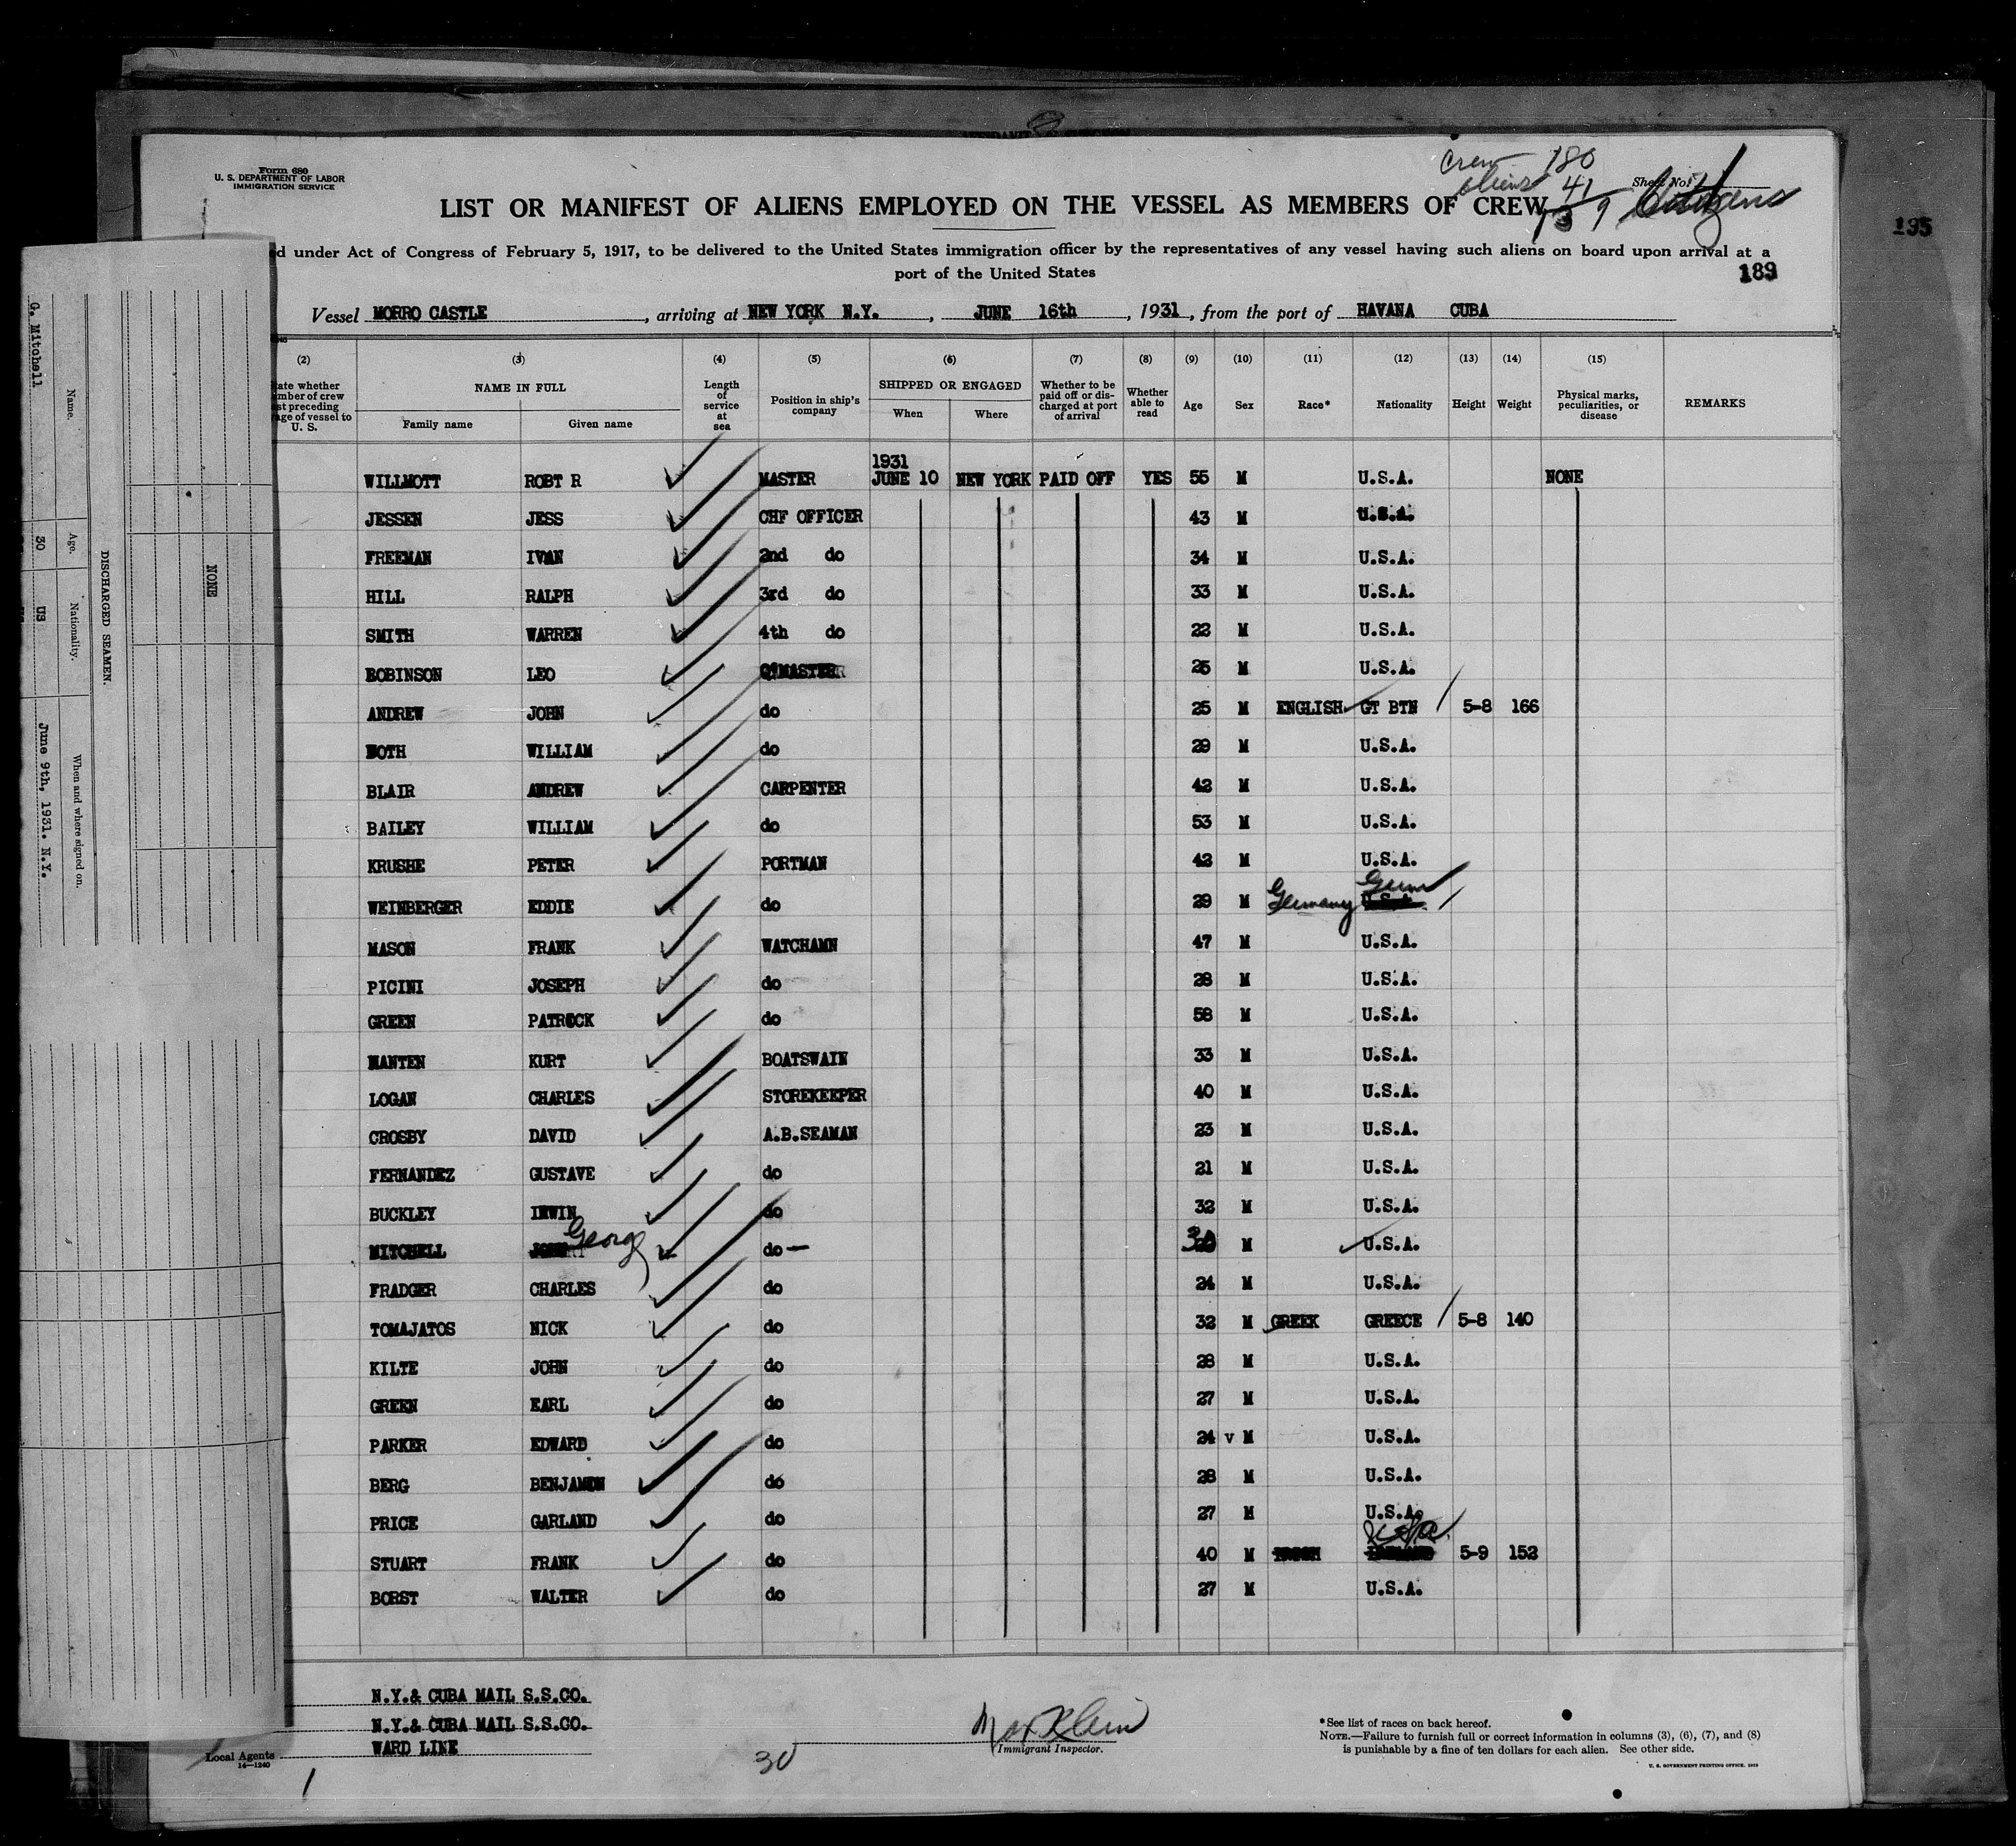 Form 680
U. S. DEPARTMENT OF LABOR
IMMIGRATION SERVICE
Crew 180
aliens 41
139 Citizens
Sheet No. 1
LIST OR MANIFEST OF ALIENS EMPLOYED ON THE VESSEL AS MEMBERS OF CREW
ed under Act of Congress of February 5, 1917, to be delivered to the United States immigration officer by the representatives of any vessel having such aliens on board upon arrival at a
port of the United States
189
195
Vessel MORRO CASTLE, arriving at NEW YORK N.Y., JUNE 16th, 1931, from the port of HAVANA CUBA
(2) (3) (4) (5) (6) (7) (8) (9) (10) (11) (12) (13) (14) (15)
ate whether
mber of crew
st preceding
age of vessel to
U. S.
NAME IN FULL
Family name Given name
Length of service at sea
Position in ship's company
SHIPPED OR ENGAGED
When Where
Whether to be paid off or discharged at port of arrival
Whether able to read
Age Sex Race* Nationality Height Weight
Physical marks, peculiarities, or disease
REMARKS
1931
WILLMOTT ROBT R MASTER JUNE 10 NEW YORK PAID OFF YES 55 M U.S.A. NONE
JESSEN JESS CHF OFFICER 43 M U.S.A.
FREEMAN IVAN 2nd do 34 M U.S.A.
HILL RALPH 3rd do 33 M U.S.A.
SMITH WARREN 4th do 22 M U.S.A.
ROBINSON LEO Q'MASTER 25 M U.S.A.
ANDREW JOHN do 25 M ENGLISH GT BTN 5-8 166
NOTH WILLIAM do 29 M U.S.A.
BLAIR ANDREW CARPENTER 42 M U.S.A.
BAILEY WILLIAM do 53 M U.S.A.
KRUSHE PETER PORTMAN 42 M U.S.A.
WEINBERGER EDDIE do 29 M Germany Germ U.S.A.
MASON FRANK WATCHAMN 47 M U.S.A.
PICINI JOSEPH do 28 M U.S.A.
GREEN PATROCK do 58 M U.S.A.
MANTEN KURT BOATSWAIN 33 M U.S.A.
LOGAN CHARLES STOREKEEPER 40 M U.S.A.
CROSBY DAVID A.B.SEAMAN 23 M U.S.A.
FERNANDEZ GUSTAVE do 21 M U.S.A.
BUCKLEY IRWIN do 32 M U.S.A.
MITCHELL George do — 30 M U.S.A.
FRADGER CHARLES do 24 M U.S.A.
TOMAJATOS NICK do 32 M GREEK GREECE 5-8 140
KILTE JOHN do 28 M U.S.A.
GREEN EARL do 27 M U.S.A.
PARKER EDWARD do 24 v M U.S.A.
BERG BENJAMIN do 28 M U.S.A.
PRICE GARLAND do 27 M U.S.A.
STUART FRANK do 40 M IRISH USA 5-9 152
BORST WALTER do 27 M U.S.A.
N.Y.& CUBA MAIL S.S.CO.
N.Y.& CUBA MAIL S.S.CO.
Local Agents WARD LINE
14—1240
1
30
Max Klein
Immigrant Inspector.
*See list of races on back hereof.
NOTE.—Failure to furnish full or correct information in columns (3), (6), (7), and (8)
is punishable by a fine of ten dollars for each alien. See other side.
U. S. GOVERNMENT PRINTING OFFICE. 1929
DISCHARGED SEAMEN.
Name. Age. Nationality. When and where signed on.
G. Mitchell 30 US June 9th, 1931. N.Y.
NONE